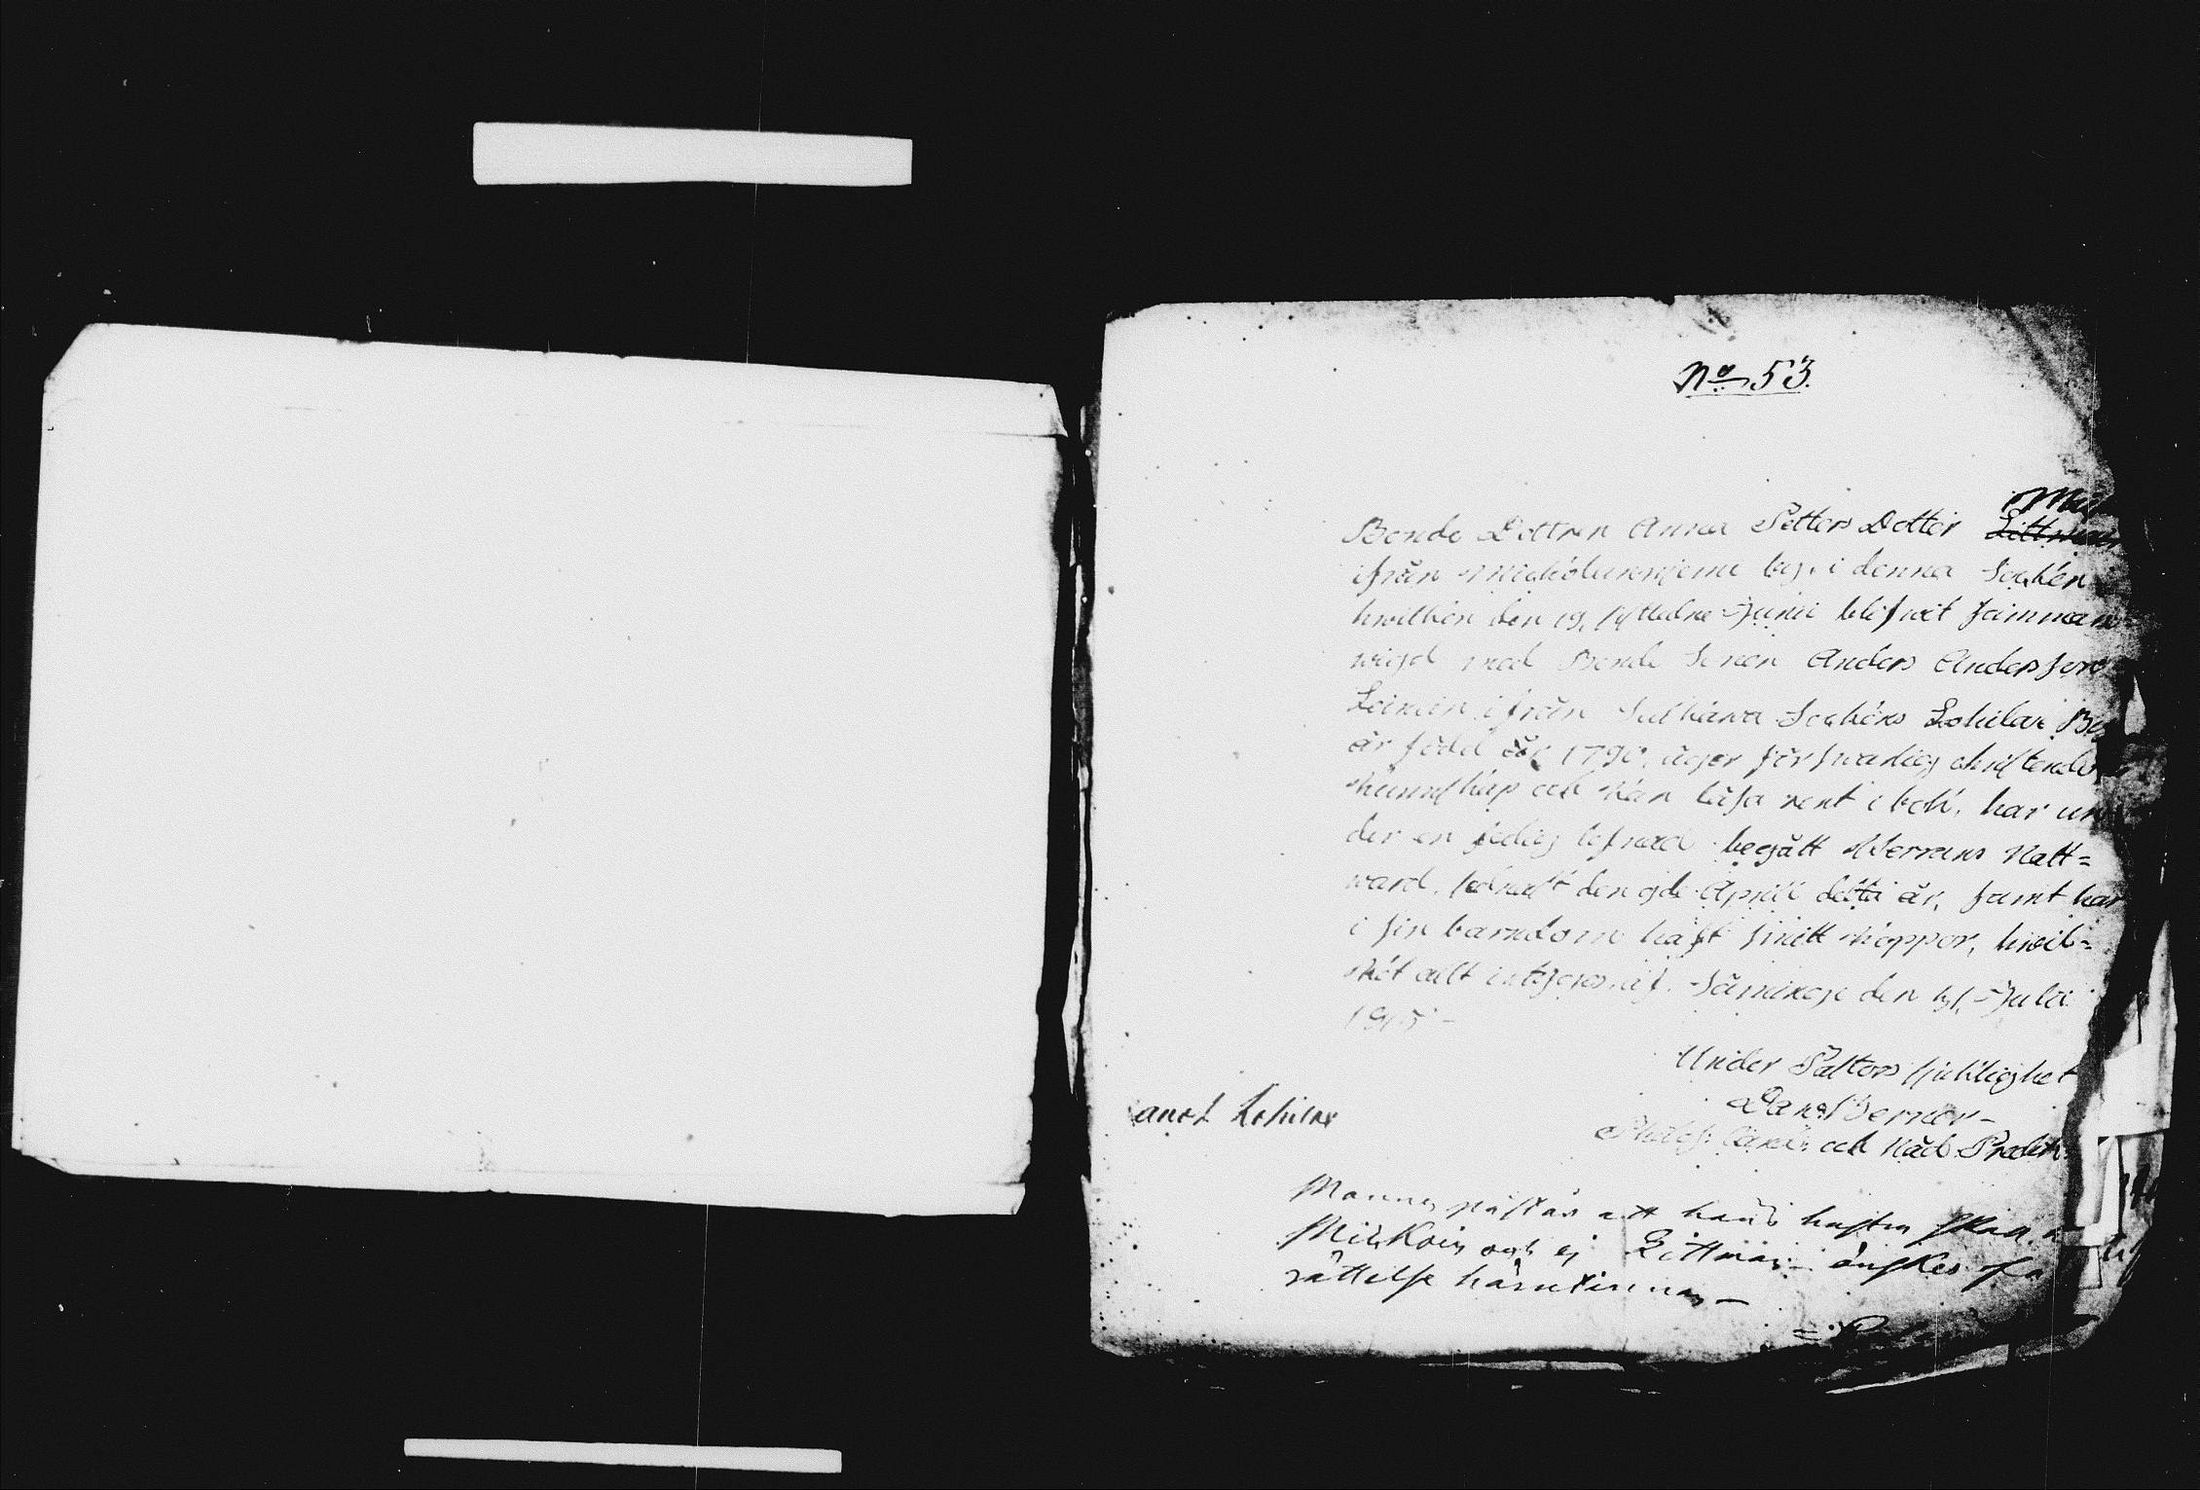 No 53.
Mi
Bonde Dottren Anna Petters Dotter Littman
ifrån by, i denna Sochen
hwilken den 19, sistledne Junii blifwit samman
wigd med Bonde Sonen Anders Andersson
Leinin ifrån Sulkawa Sochens Lohilax By
är född år 1790, äger förswarlig christendoms
kunskap och kan läsa rent i bok, har un
der en sedig lefnad begått Herrans Natt=
ward, sednast den 9de April detta år, samt har
i sin barndom haft små koppor, hwil=
ket allt intygas af. Säminge den Julii
1815 –
Under Pastors sjuklighet
Dan. Werner –
och Nåd. Predik.
anot. Lohilax
Mannen påstår att hans hustru skall
Mickoin och ej Littman – önskes få
rättelse härutinnan –